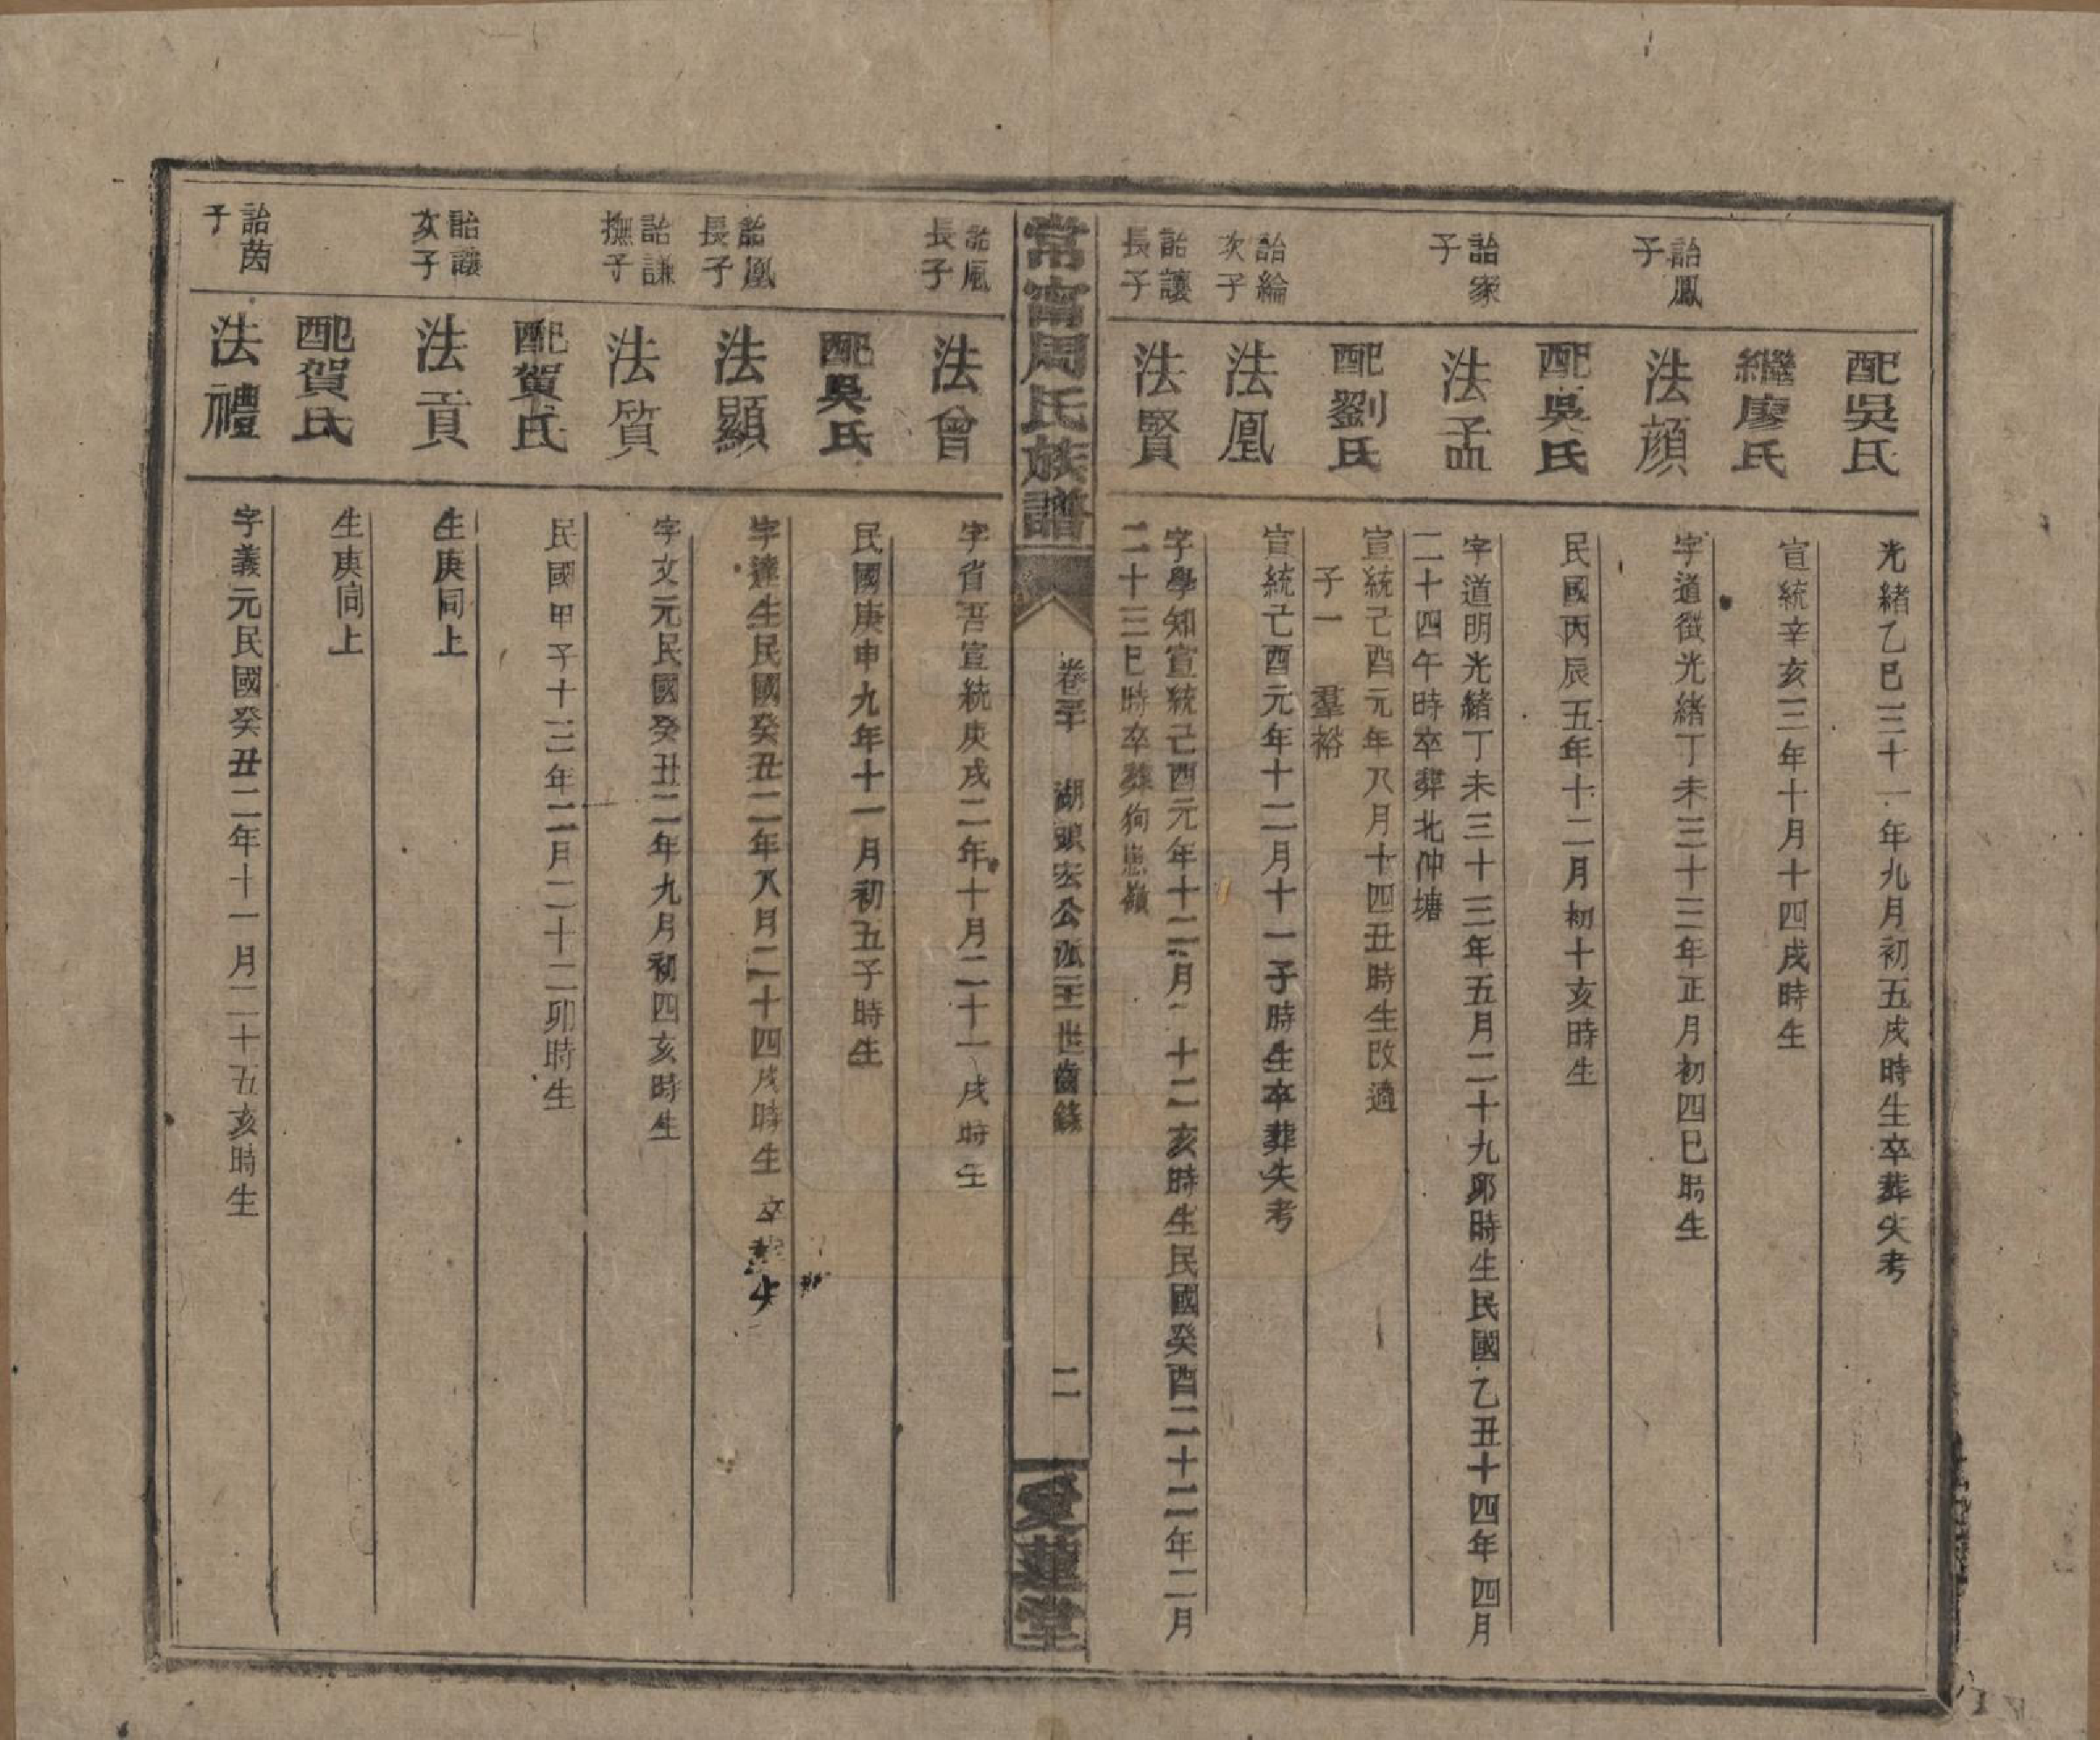 配吳氏
光緒乙巳三十一年九月初五戌時生卒葬失考
繼廖氏
宣統辛亥三年十月十四戌時生
詒鳳
子
法顏
字道徵光緒丁未三十三年正月初四巳時生
配吳氏
民國丙辰五年十二月初十亥時生
詒家
子
法孟
字道明光緒丁未三十三年五月二十九卯時生民國乙丑十四年四月
二十四午時卒葬北沖塘
配劉氏
宣統己酉元年八月十四丑時生改適
子一 羣裕
詒綸
次子
法凰
宣統己酉元年十二月十一子時生卒葬失考
詒讓
長子
法賢
字學知宣統己酉元年十二月十二亥時生民國癸酉二十二年二月
二十三巳時卒葬狗嶺
常甯周氏族譜
卷三十 湖頭宏公派三王世齒錄
二
愛蓮堂
詒風
長子
法會
字省吾宣統庚戌二年十月二十一戌時生
配吳氏
民國庚申九年十一月初五子時生
詒凰
長子
法顯
字達生民國癸丑二年八月二十四戌時生卒葬失
詒謙
撫子
法質
字文元民國癸丑二年九月初四亥時生
配賀氏
民國甲子十三年二月二十二卯時生
詒讓
次子
法貢
生庚同上
配賀氏
生庚同上
詒茵
子
法禮
字義元民國癸丑二年十一月二十五亥時生